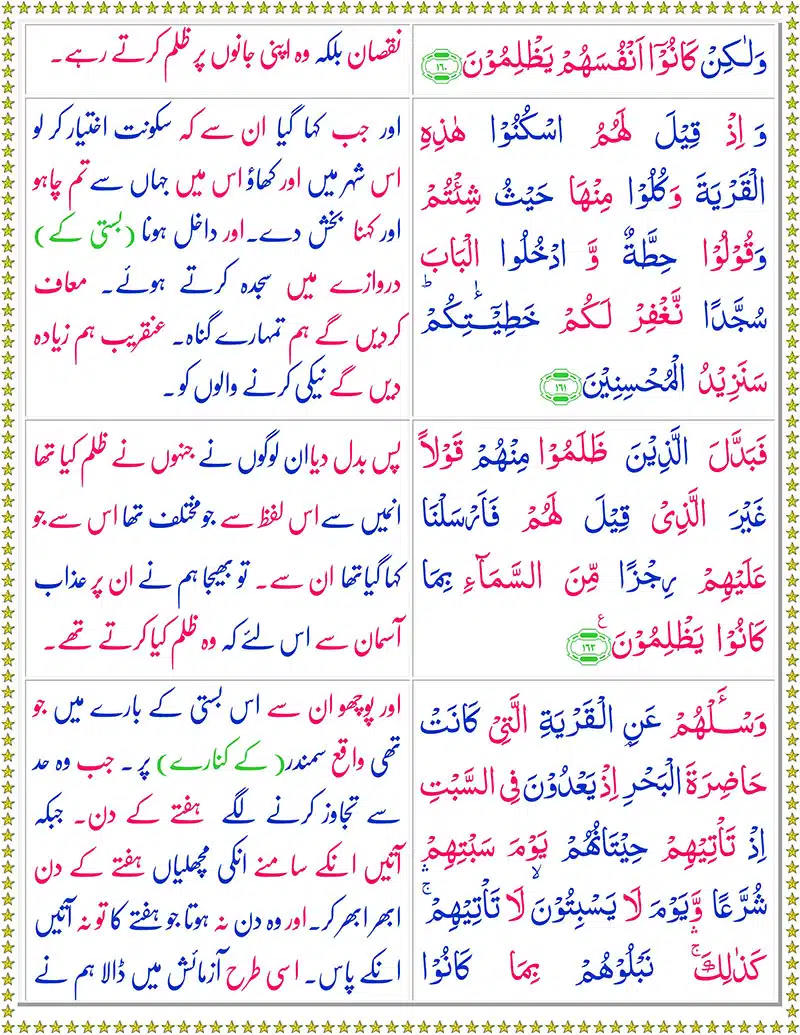 وَلٰـكِنۡ كَانُوۡۤا اَنۡفُسَهُمۡ يَظۡلِمُوۡنَ ﴿۱۶۰﴾
وَ اِذۡ قِيۡلَ لَهُمُ اسۡكُنُوۡا هٰذِهِ
الۡقَرۡيَةَ وَكُلُوۡا مِنۡهَا حَيۡثُ شِئۡتُمۡ
وَقُوۡلُوۡا حِطَّةٌ وَّ ادۡخُلُوا الۡبَابَ
سُجَّدًا نَّغۡفِرۡ لَـكُمۡ خَطِيۡٓــٰٔــتِكُمۡ ؕ
سَنَزِيۡدُ الۡمُحۡسِنِيۡنَ ﴿۱۶۱﴾
فَبَدَّلَ الَّذِيۡنَ ظَلَمُوۡا مِنۡهُمۡ قَوۡلاً
غَيۡرَ الَّذِىۡ قِيۡلَ لَهُمۡ فَاَرۡسَلۡنَا
عَلَيۡهِمۡ رِجۡزًا مِّنَ السَّمَآءِ بِمَا
كَانُوۡا يَظۡلِمُوۡنَ ﴿۱۶۲﴾ ع
وَسۡــَٔلۡهُمۡ عَنِ الۡقَرۡيَةِ الَّتِىۡ كَانَتۡ
حَاضِرَةَ الۡبَحۡرِ اِذۡ يَعۡدُوۡنَ فِى السَّبۡتِ
اِذۡ تَاۡتِيۡهِمۡ حِيۡتَانُهُمۡ يَوۡمَ سَبۡتِهِمۡ
شُرَّعًا وَّيَوۡمَ لَا يَسۡبِتُوۡنَ ۙ لَا تَاۡتِيۡهِمۡ ۛۚ
كَذٰلِكَ ۛۚ نَبۡلُوۡهُمۡ بِمَا كَانُوۡا
نقصان بلکہ وہ اپنی جانوں پر ظلم کرتے رہے۔
اور جب کہا گیا ان سے کہ سکونت اختیار کر لو
اس شہر میں اور کھاؤ اس میں جہاں سے تم چاہو
اور کہنا بخش دے۔ اور داخل ہونا (بستی کے)
دروازے میں سجدہ کرتے ہوئے۔ معاف
کردیں گے ہم تمہارے گناہ۔ عنقریب ہم زیادہ
دیں گے نیکی کرنے والوں کو۔
پس بدل دیا ان لوگوں نے جنہوں نے ظلم کیا تھا
انمیں سے اس لفظ سے جو مختلف تھا اس سے جو
کہا گیا تھا ان سے۔ تو بھیجا ہم نے ان پر عذاب
آسمان سے اس لئے کہ وہ ظلم کیا کرتے تھے۔
اور پوچھو ان سے اس بستی کے بارے میں جو
تھی واقع سمندر (کے کنارے) پر۔ جب وہ حد
سے تجاوز کرنے لگے ہفتے کے دن۔ جبکہ
آتیں انکے سامنے انکی مچھلیاں ہفتے کے دن
ابھر ابھر کر۔ اور وہ دن نہ ہوتا جو ہفتے کا تو نہ آتیں
انکے پاس۔ اسی طرح آزمائش میں ڈالا ہم نے